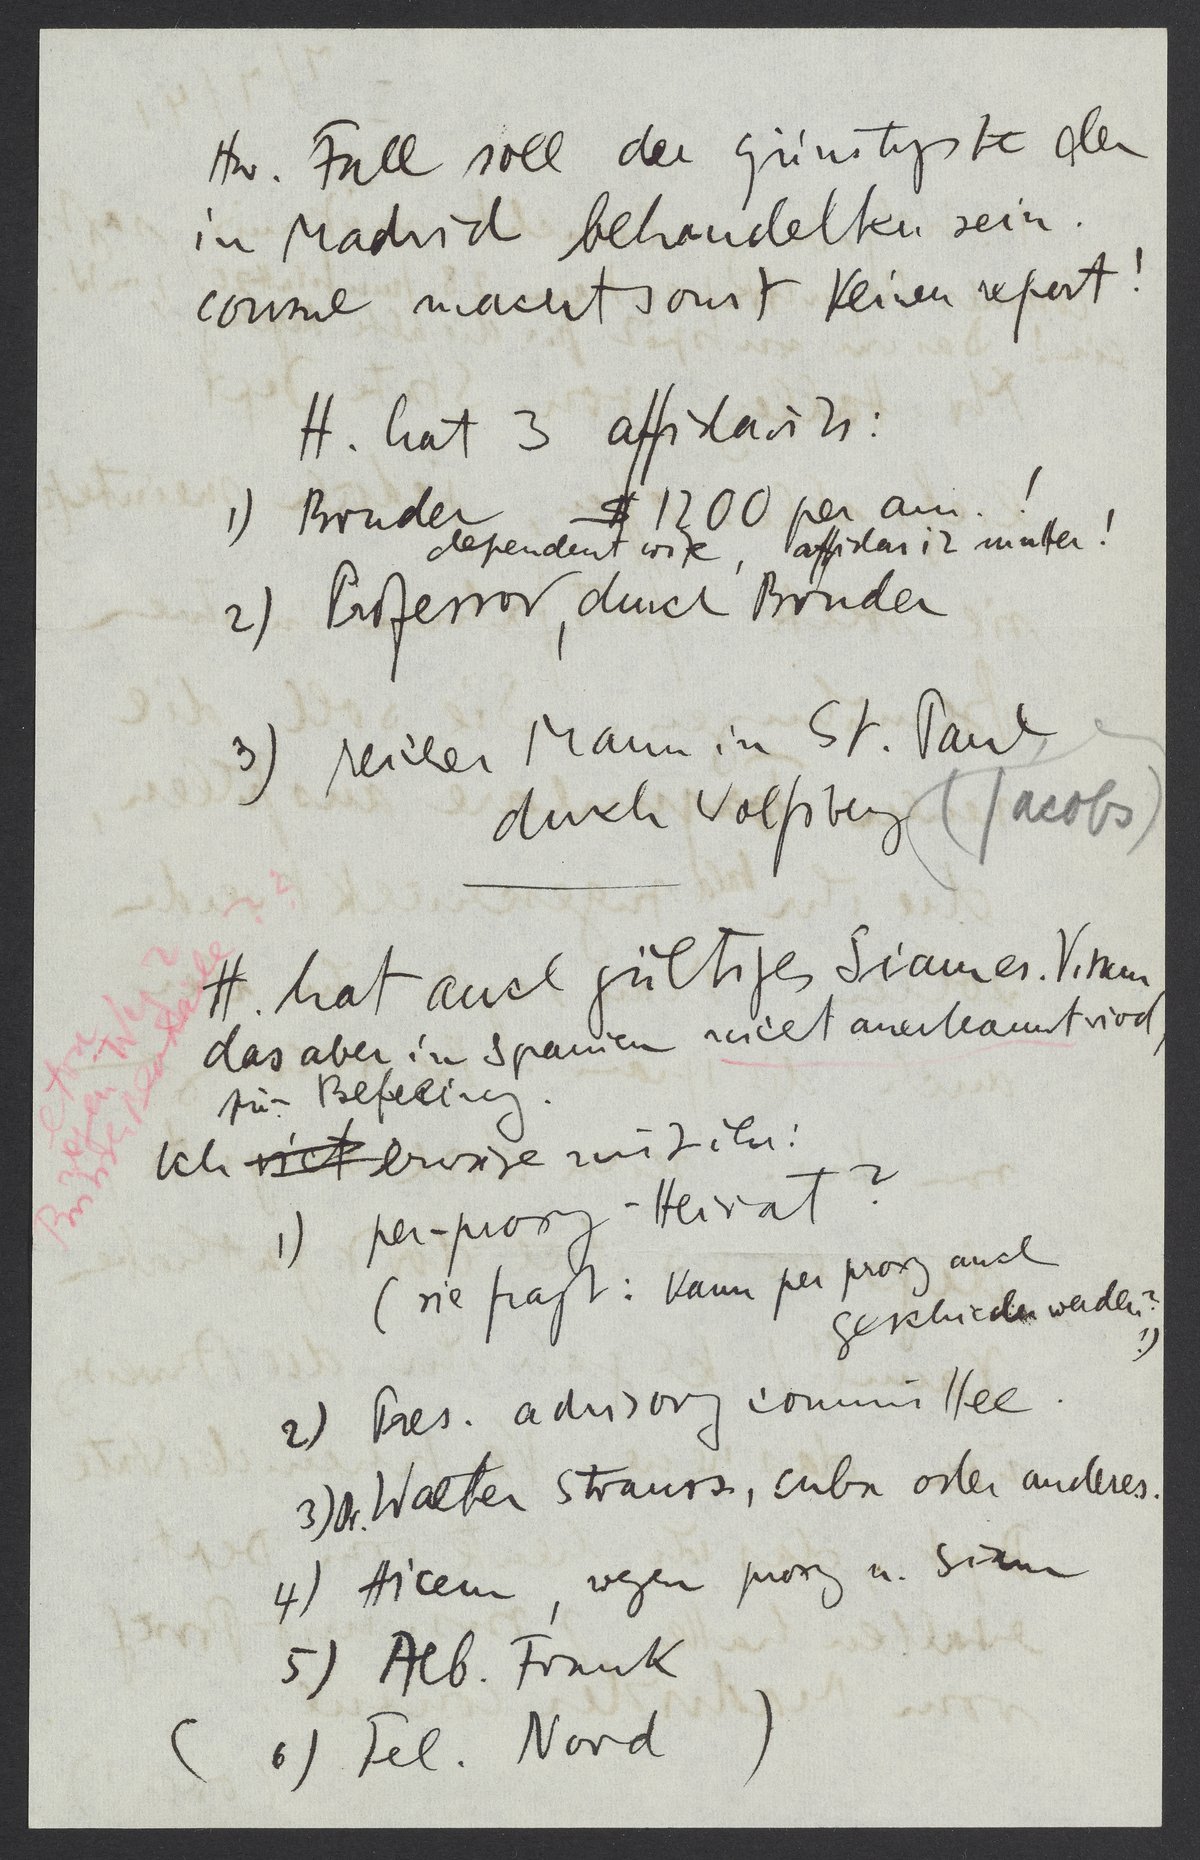 Hw. Fall soll der günstigste der
in Madrid behandelten sein.
consul macht sonst keinen report!
H. hat 3 affidavits:
1) Bruder $1200 per ann. !
dependent wife, affidavit mutter!
2) Professor, durch Bruder
3) reicher Mann in St. Paul
durch Wolfsberg (Jacobs)
H. hat auch gültiges Siames. Visum,
das aber in Spanien nicht anerkannt wird,
für Befreiung.
Ich nicht erwäge mit ihr:
1) per-proxy-Heirat?
(sie fragt: kann per proxy auch
geschieden werden?
!)
2) Pres. advisory committee.
3) Dr. Walter Strauss, cuba oder anderes.
4) Hicem, wegen proxy u. Siam
5) Alb. Frank
( 6) Tel. Nord )